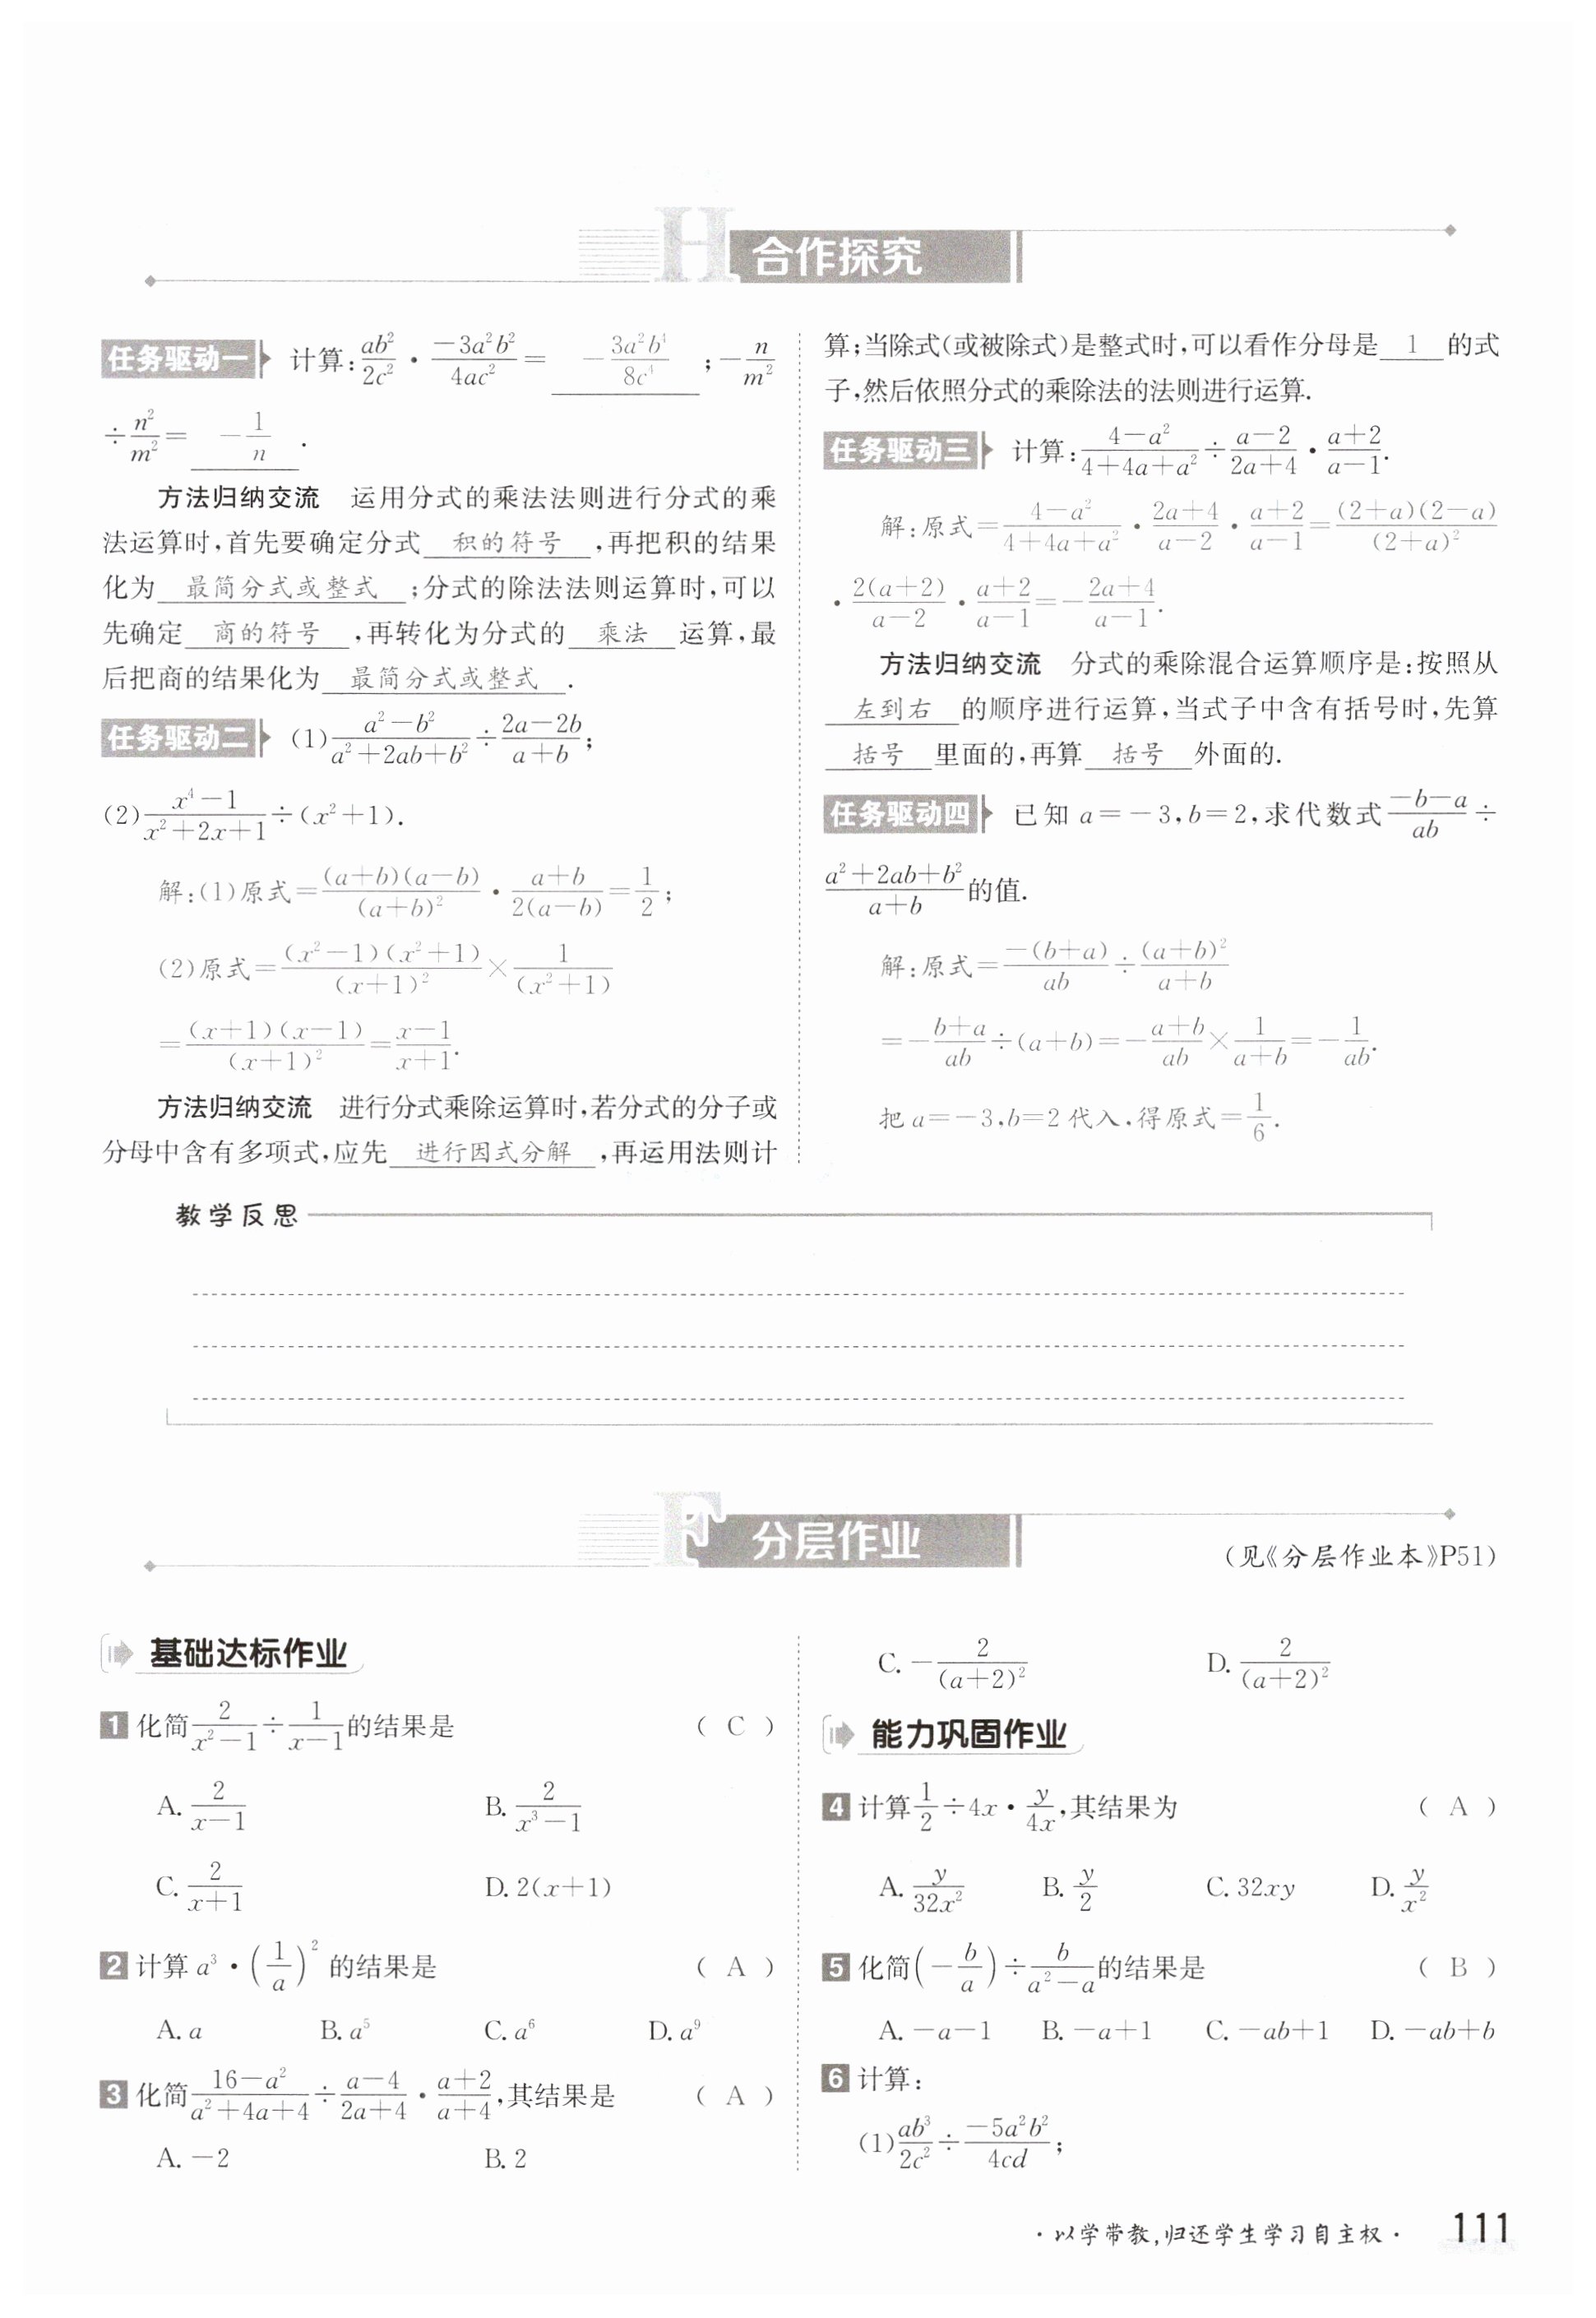 H 合作探究
任务驱动一 计算:\frac{ab^2}{2c^2}·\frac{-3a^2b^2}{4ac^2}= -\frac{3a^2b^4}{8c^4} ;-\frac{n}{m^2}
÷\frac{n^2}{m^2}= -\frac{1}{n} .
方法归纳交流 运用分式的乘法法则进行分式的乘
法运算时,首先要确定分式 积的符号 ,再把积的结果
化为 最简分式或整式 ;分式的除法法则运算时,可以
先确定 商的符号 ,再转化为分式的 乘法 运算,最
后把商的结果化为 最简分式或整式 .
任务驱动二 (1)\frac{a^2-b^2}{a^2+2ab+b^2}÷\frac{2a-2b}{a+b};
(2)\frac{x^4-1}{x^2+2x+1}÷(x^2+1).
解:(1)原式=\frac{(a+b)(a-b)}{(a+b)^2}·\frac{a+b}{2(a-b)}=\frac{1}{2};
(2)原式=\frac{(x^2-1)(x^2+1)}{(x+1)^2}×\frac{1}{(x^2+1)}
=\frac{(x+1)(x-1)}{(x+1)^2}=\frac{x-1}{x+1}.
方法归纳交流 进行分式乘除运算时,若分式的分子或
分母中含有多项式,应先 进行因式分解 ,再运用法则计
算;当除式(或被除式)是整式时,可以看作分母是 1 的式
子,然后依照分式的乘除法的法则进行运算.
任务驱动三 计算:\frac{4-a^2}{4+4a+a^2}÷\frac{a-2}{2a+4}·\frac{a+2}{a-1}.
解:原式=\frac{4-a^2}{4+4a+a^2}·\frac{2a+4}{a-2}·\frac{a+2}{a-1}=\frac{(2+a)(2-a)}{(2+a)^2}
·\frac{2(a+2)}{a-2}·\frac{a+2}{a-1}=-\frac{2a+4}{a-1}.
方法归纳交流 分式的乘除混合运算顺序是:按照从
左到右 的顺序进行运算,当式子中含有括号时,先算
括号 里面的,再算 括号 外面的.
任务驱动四 已知 a=-3,b=2,求代数式\frac{-b-a}{ab}÷
\frac{a^2+2ab+b^2}{a+b}的值.
解:原式=\frac{-(b+a)}{ab}÷\frac{(a+b)^2}{a+b}
=-\frac{b+a}{ab}÷(a+b)=-\frac{a+b}{ab}×\frac{1}{a+b}=-\frac{1}{ab}.
把 a=-3,b=2 代入,得原式=\frac{1}{6}.
教学反思
F 分层作业
(见《分层作业本》P51)
基础达标作业
1 化简\frac{2}{x^2-1}÷\frac{1}{x-1}的结果是 ( C )
A. \frac{2}{x-1} B. \frac{2}{x^3-1}
C. \frac{2}{x+1} D. 2(x+1)
2 计算 a^3·(\frac{1}{a})^2 的结果是 ( A )
A. a B. a^5 C. a^6 D. a^9
3 化简\frac{16-a^2}{a^2+4a+4}÷\frac{a-4}{2a+4}·\frac{a+2}{a+4},其结果是 ( A )
A. -2 B. 2
C. -\frac{2}{(a+2)^2} D. \frac{2}{(a+2)^2}
能力巩固作业
4 计算\frac{1}{2}÷4x·\frac{y}{4x},其结果为 ( A )
A. \frac{y}{32x^2} B. \frac{y}{2} C. 32xy D. \frac{y}{x^2}
5 化简(-\frac{b}{a})÷\frac{b}{a^2-a}的结果是 ( B )
A. -a-1 B. -a+1 C. -ab+1 D. -ab+b
6 计算:
(1)\frac{ab^3}{2c^2}÷\frac{-5a^2b^2}{4cd};
·以学带教,归还学生学习自主权· 111